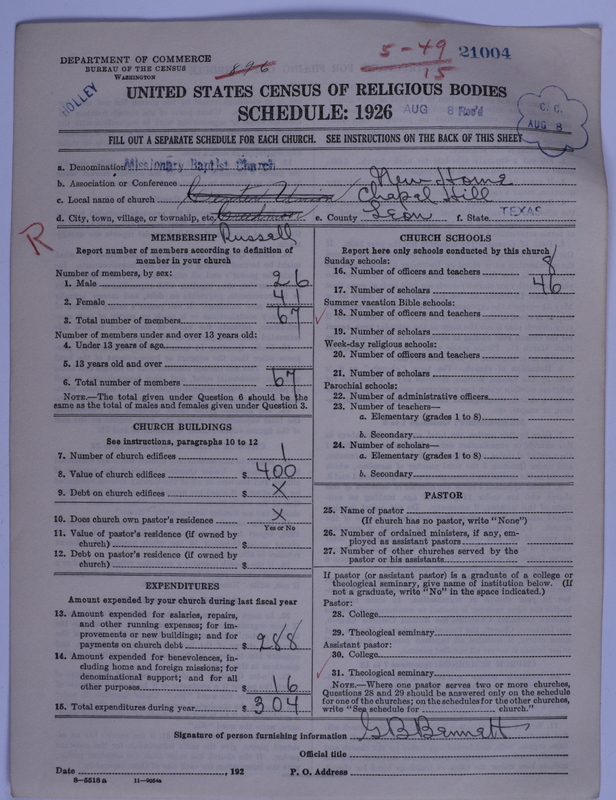 DEPARTMENT OF COMMERCE
BUREAU OF THE CENSUS
WASHINGTON
896
5-49
15
21004
HOLLEY
UNITED STATES CENSUS OF RELIGIOUS BODIES
SCHEDULE: 1926
AUG 8 Rec'd
C.C.
AUG 8
FILL OUT A SEPARATE SCHEDULE FOR EACH CHURCH. SEE INSTRUCTIONS ON THE BACK OF THIS SHEET
a. Denomination Missionary Baptist Church
b. Association or Conference New Home
c. Local name of church Union Chapel Hill
d. City, town, village, or township, etc. e. County Leon f. State TEXAS
R
Russell
MEMBERSHIP
Report number of members according to definition of
member in your church
Number of members, by sex:
1. Male 26
2. Female 41
3. Total number of members 67
Number of members under and over 13 years old:
4. Under 13 years of age
5. 13 years old and over
6. Total number of members 67
NOTE.—The total given under Question 6 should be the
same as the total of males and females given under Question 3.
CHURCH BUILDINGS
See instructions, paragraphs 10 to 12
7. Number of church edifices 1
8. Value of church edifices $ 400
9. Debt on church edifices $ X
10. Does church own pastor's residence X
Yes or No
11. Value of pastor's residence (if owned by
church) $
12. Debt on pastor's residence (if owned by
church) $
EXPENDITURES
Amount expended by your church during last fiscal year
13. Amount expended for salaries, repairs,
and other running expenses; for im-
provements or new buildings; and for
payments on church debt $ 288
14. Amount expended for benevolences, in-
cluding home and foreign missions; for
denominational support; and for all
other purposes $ 16
15. Total expenditures during year $ 304
CHURCH SCHOOLS
Report here only schools conducted by this church
Sunday schools:
16. Number of officers and teachers 8
17. Number of scholars 46
Summer vacation Bible schools:
18. Number of officers and teachers
19. Number of scholars
Week-day religious schools:
20. Number of officers and teachers
21. Number of scholars
Parochial schools:
22. Number of administrative officers
23. Number of teachers—
a. Elementary (grades 1 to 8)
b. Secondary
24. Number of scholars—
a. Elementary (grades 1 to 8)
b. Secondary
PASTOR
25. Name of pastor
(If church has no pastor, write "None")
26. Number of ordained ministers, if any, em-
ployed as assistant pastors
27. Number of other churches served by the
pastor or his assistants
If pastor (or assistant pastor) is a graduate of a college or
theological seminary, give name of institution below. (If
not a graduate, write "No" in the space indicated.)
Pastor:
28. College
29. Theological seminary
Assistant pastor:
30. College
31. Theological seminary
NOTE.—Where one pastor serves two or more churches,
Questions 28 and 29 should be answered only on the schedule
for one of the churches; on the schedules for the other churches,
write "See schedule for church."
Signature of person furnishing information G B Bennett
Official title
Date , 192 P. O. Address
8-5518a 11-9054a